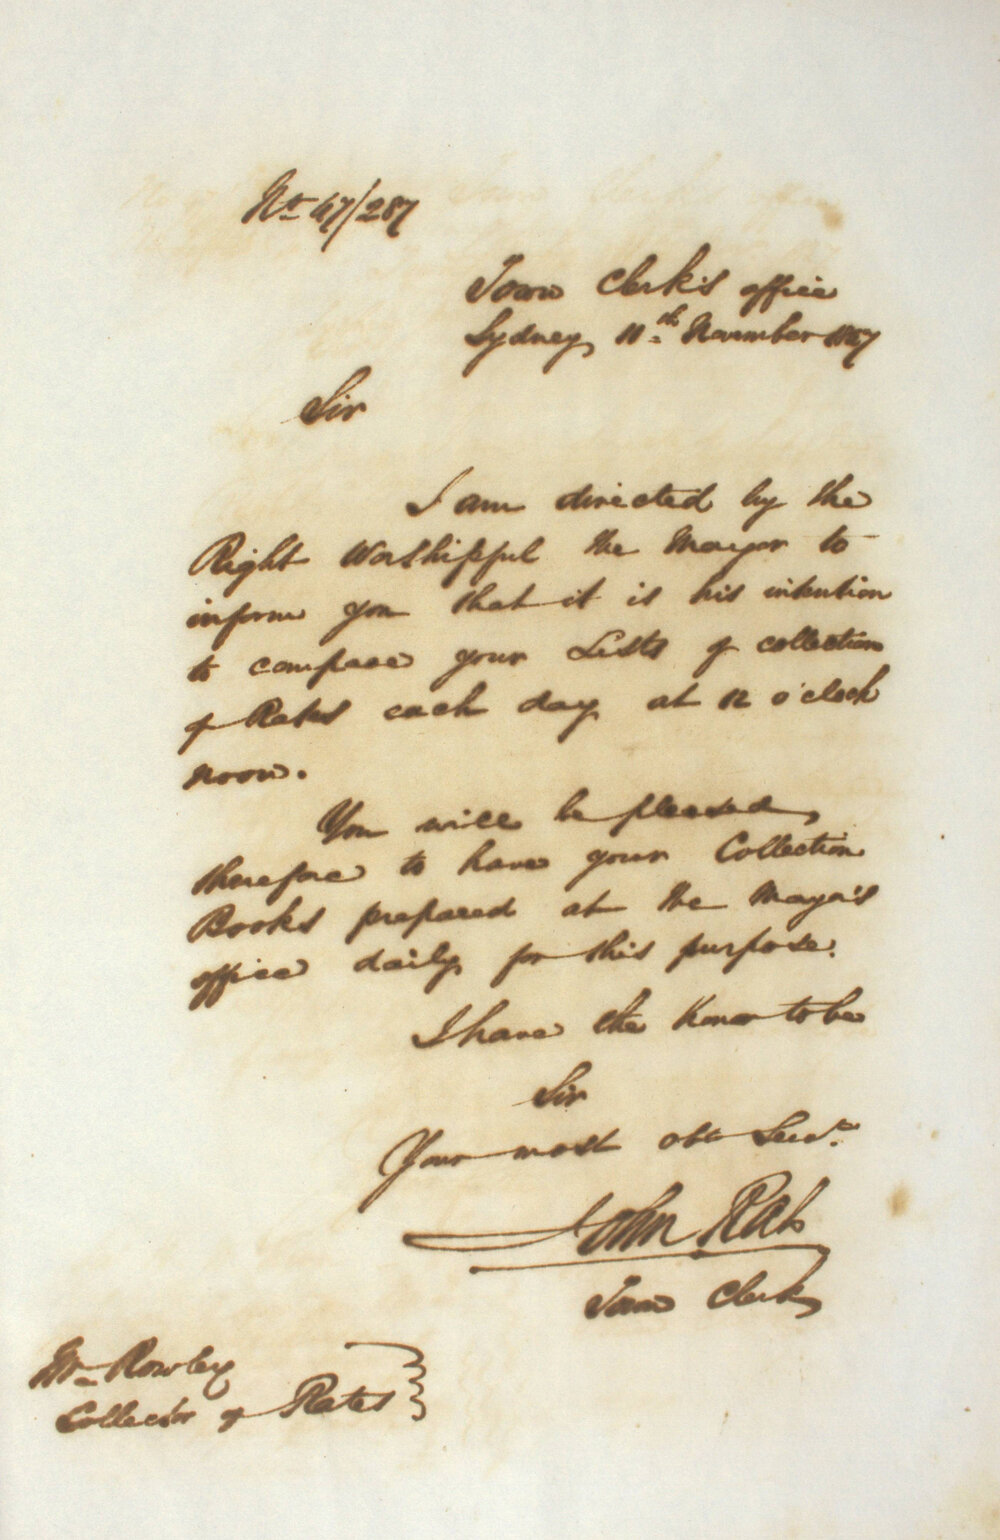 No 47/287
Town Clerk's office
Sydney, 11th November 1847
Sir
I am directed by the
Right Worshipful the Mayor to
inform you that it is his intention
to compare your Lists of collection
of Rates each day at 12 o'clock
noon.
You will be pleased,
therefore to have your Collection
Books prepared at the Mayor's
office daily for this purpose.
I have the honor to be
Sir
Your most obt Servt.
John Rae
Town Clerk
Mr Rowley
Collector of Rates